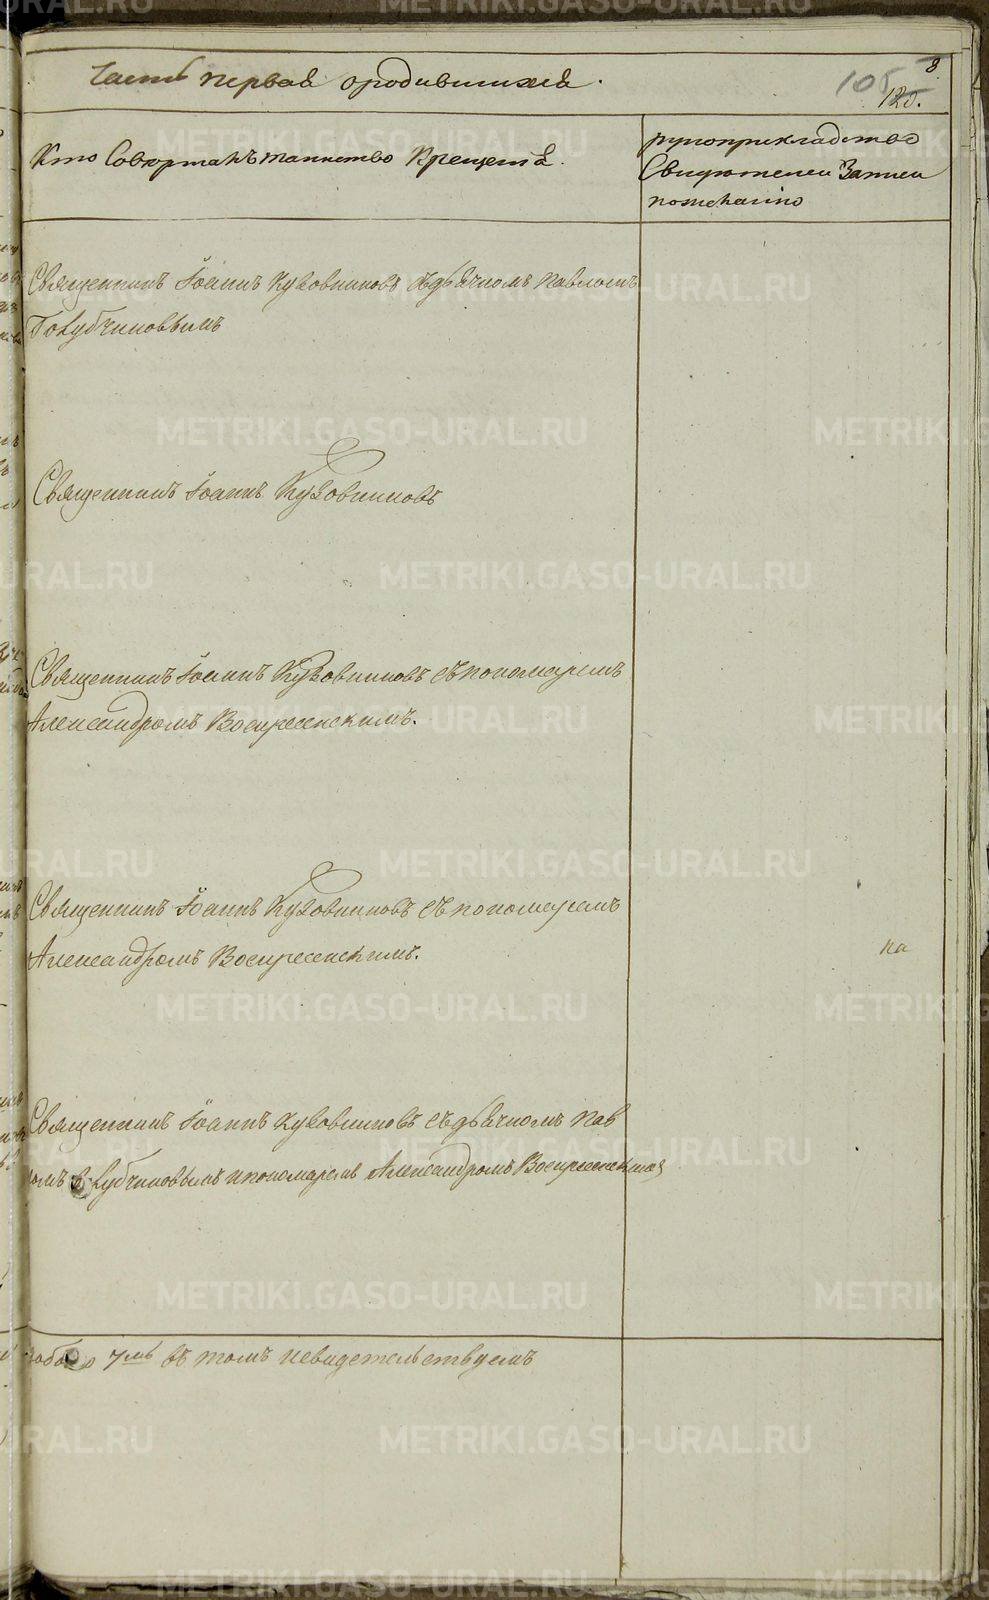 Часть первая о родившихся.
8
105
120.
Кто Совершалъ таинство Крещенія.
рукоприкладство
Свидетелей Записи
по желанію
Священникъ Іоаннъ Кузовниковъ съ дьячкомъ Павломъ
Голубчиковымъ
Священникъ Іоаннъ Кузовниковъ
Священникъ Іоаннъ Кузовниковъ съ пономаремъ
Александромъ Воскресенскимъ.
Священникъ Іоаннъ Кузовниковъ съ пономаремъ
Александромъ Воскресенскимъ.
на
Священникъ Іоаннъ Кузовниковъ съ дьячкомъ Пав
ломъ Голубчиковымъ и пономаремъ Александромъ Воскресенскимъ
7мь въ томъ и свидетельствуемъ
METRIKI.GASO-URAL.RU